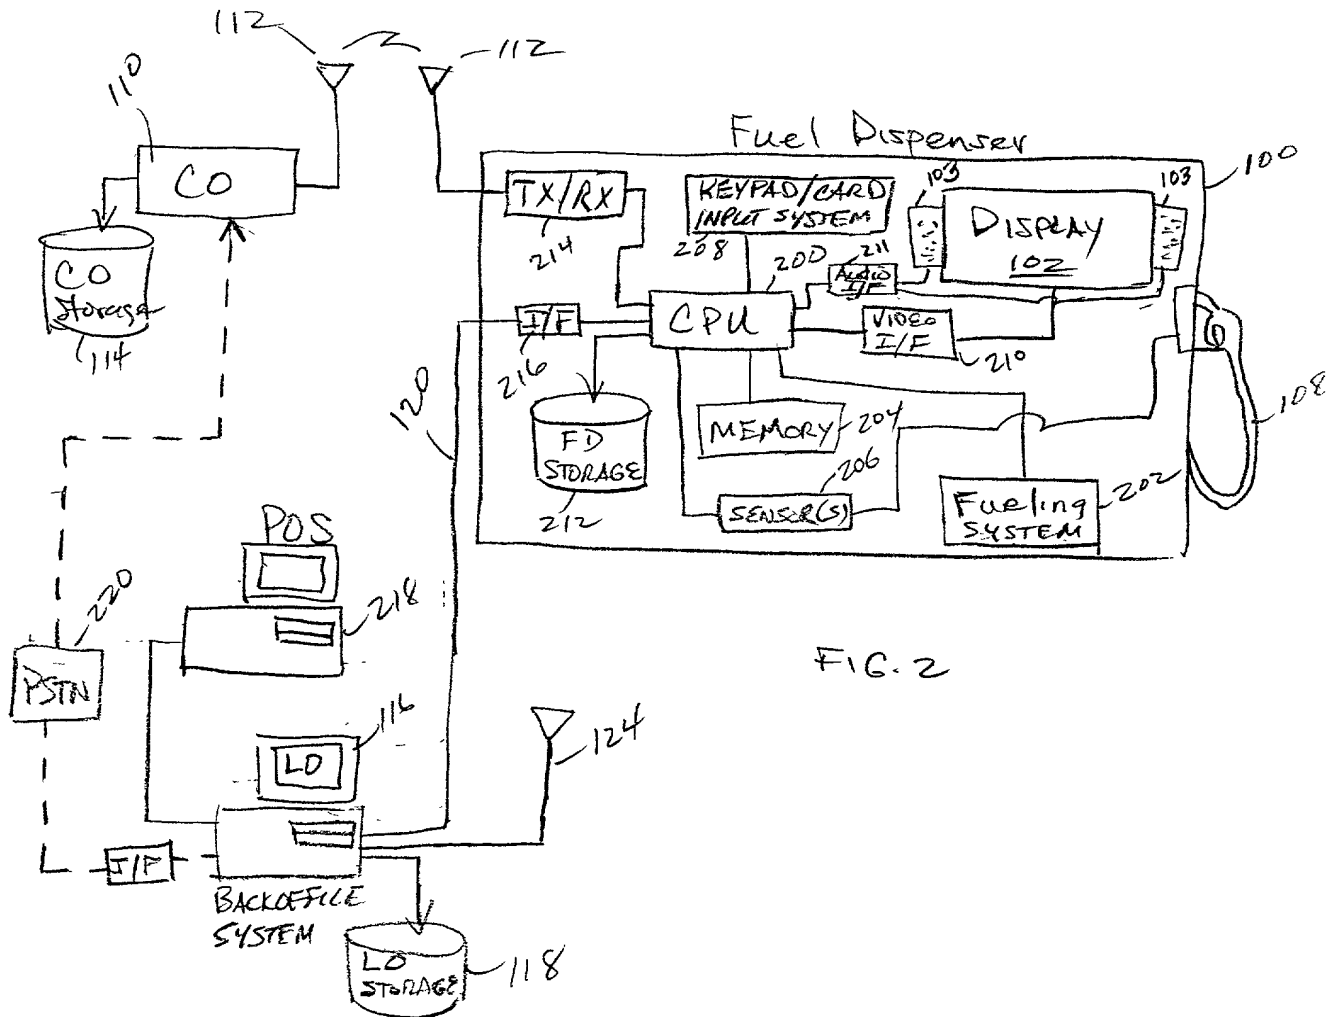 112
112
110
CO
CO
Storage
114
Fuel Dispenser
100
TX/RX
214
KEYPAD/CARD
INPUT SYSTEM
208
103
DISPLAY
102
103
200
211
AUDIO
I/F
I/F
216
CPU
VIDEO
I/F
210
120
FD
STORAGE
212
MEMORY
204
206
SENSOR(S)
Fueling
SYSTEM
202
108
POS
218
220
PSTN
FIG. 2
116
LO
124
I/F
BACKOFFICE
SYSTEM
LO
STORAGE
118